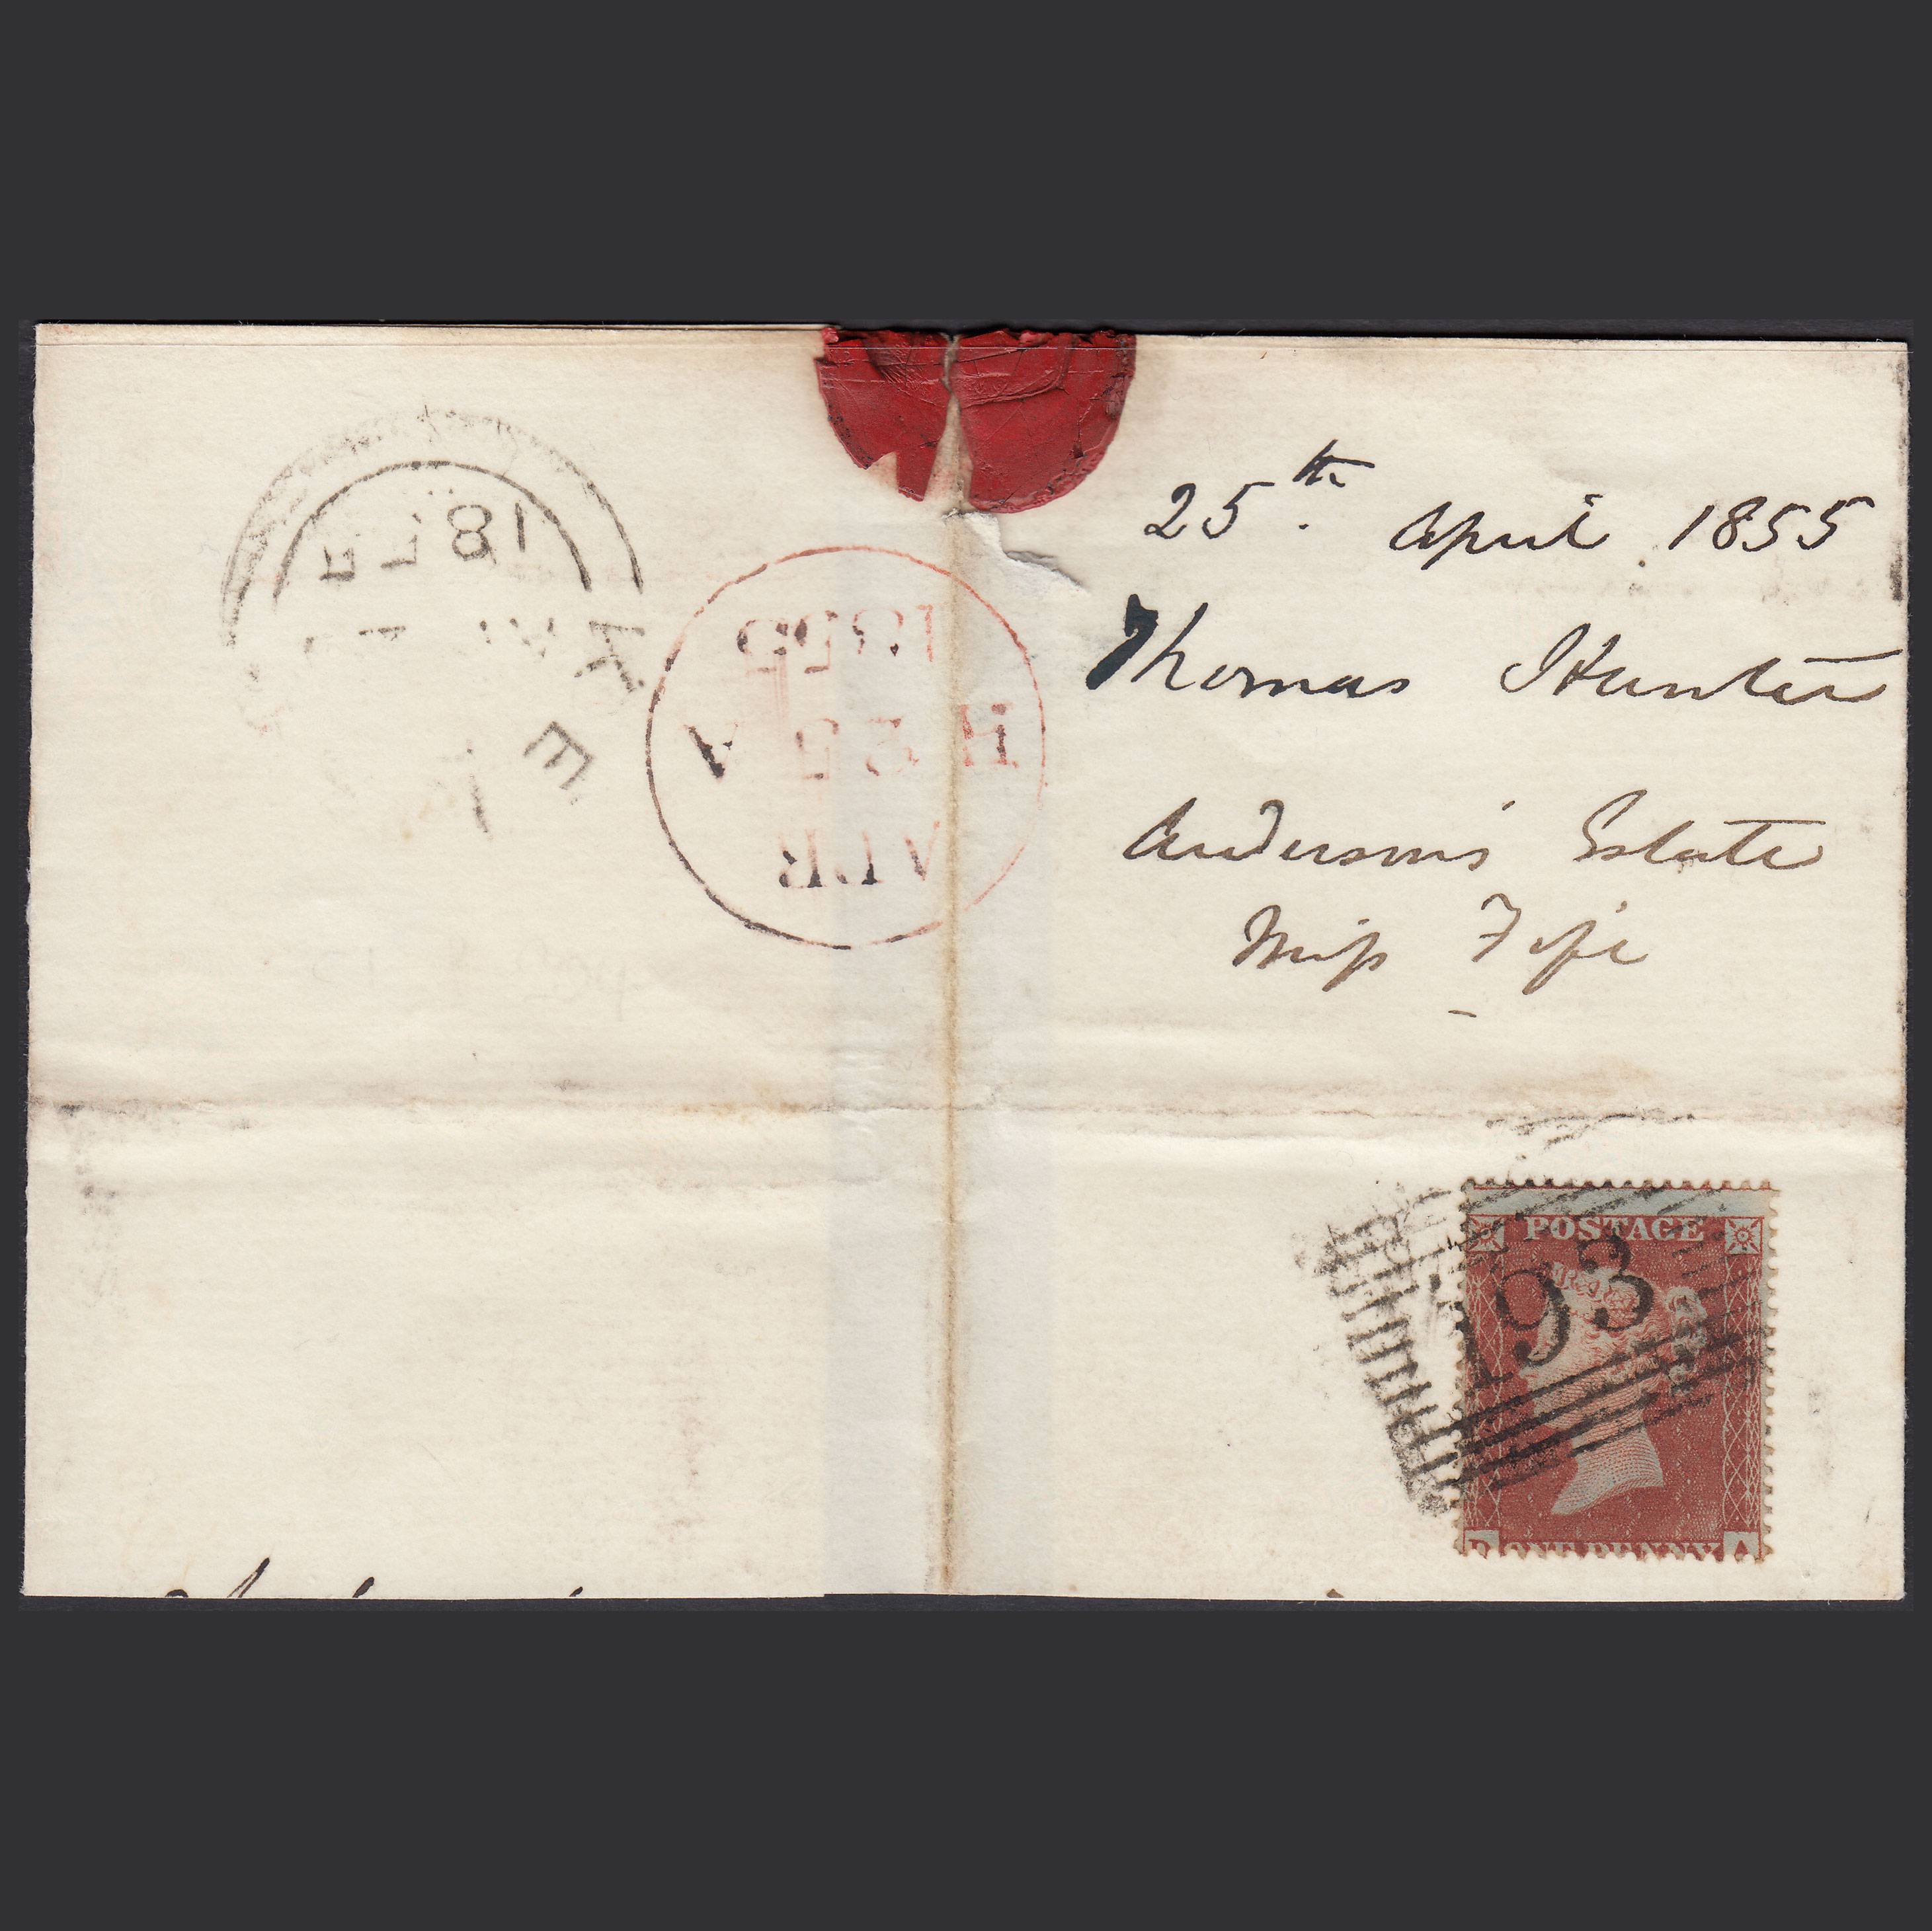 25th. April 1855
Thomas Hunter
Anderson's Estate
Miss Fife
1855
H A
APR
18
K
E
POSTAGE
193
ONE PENNY
A